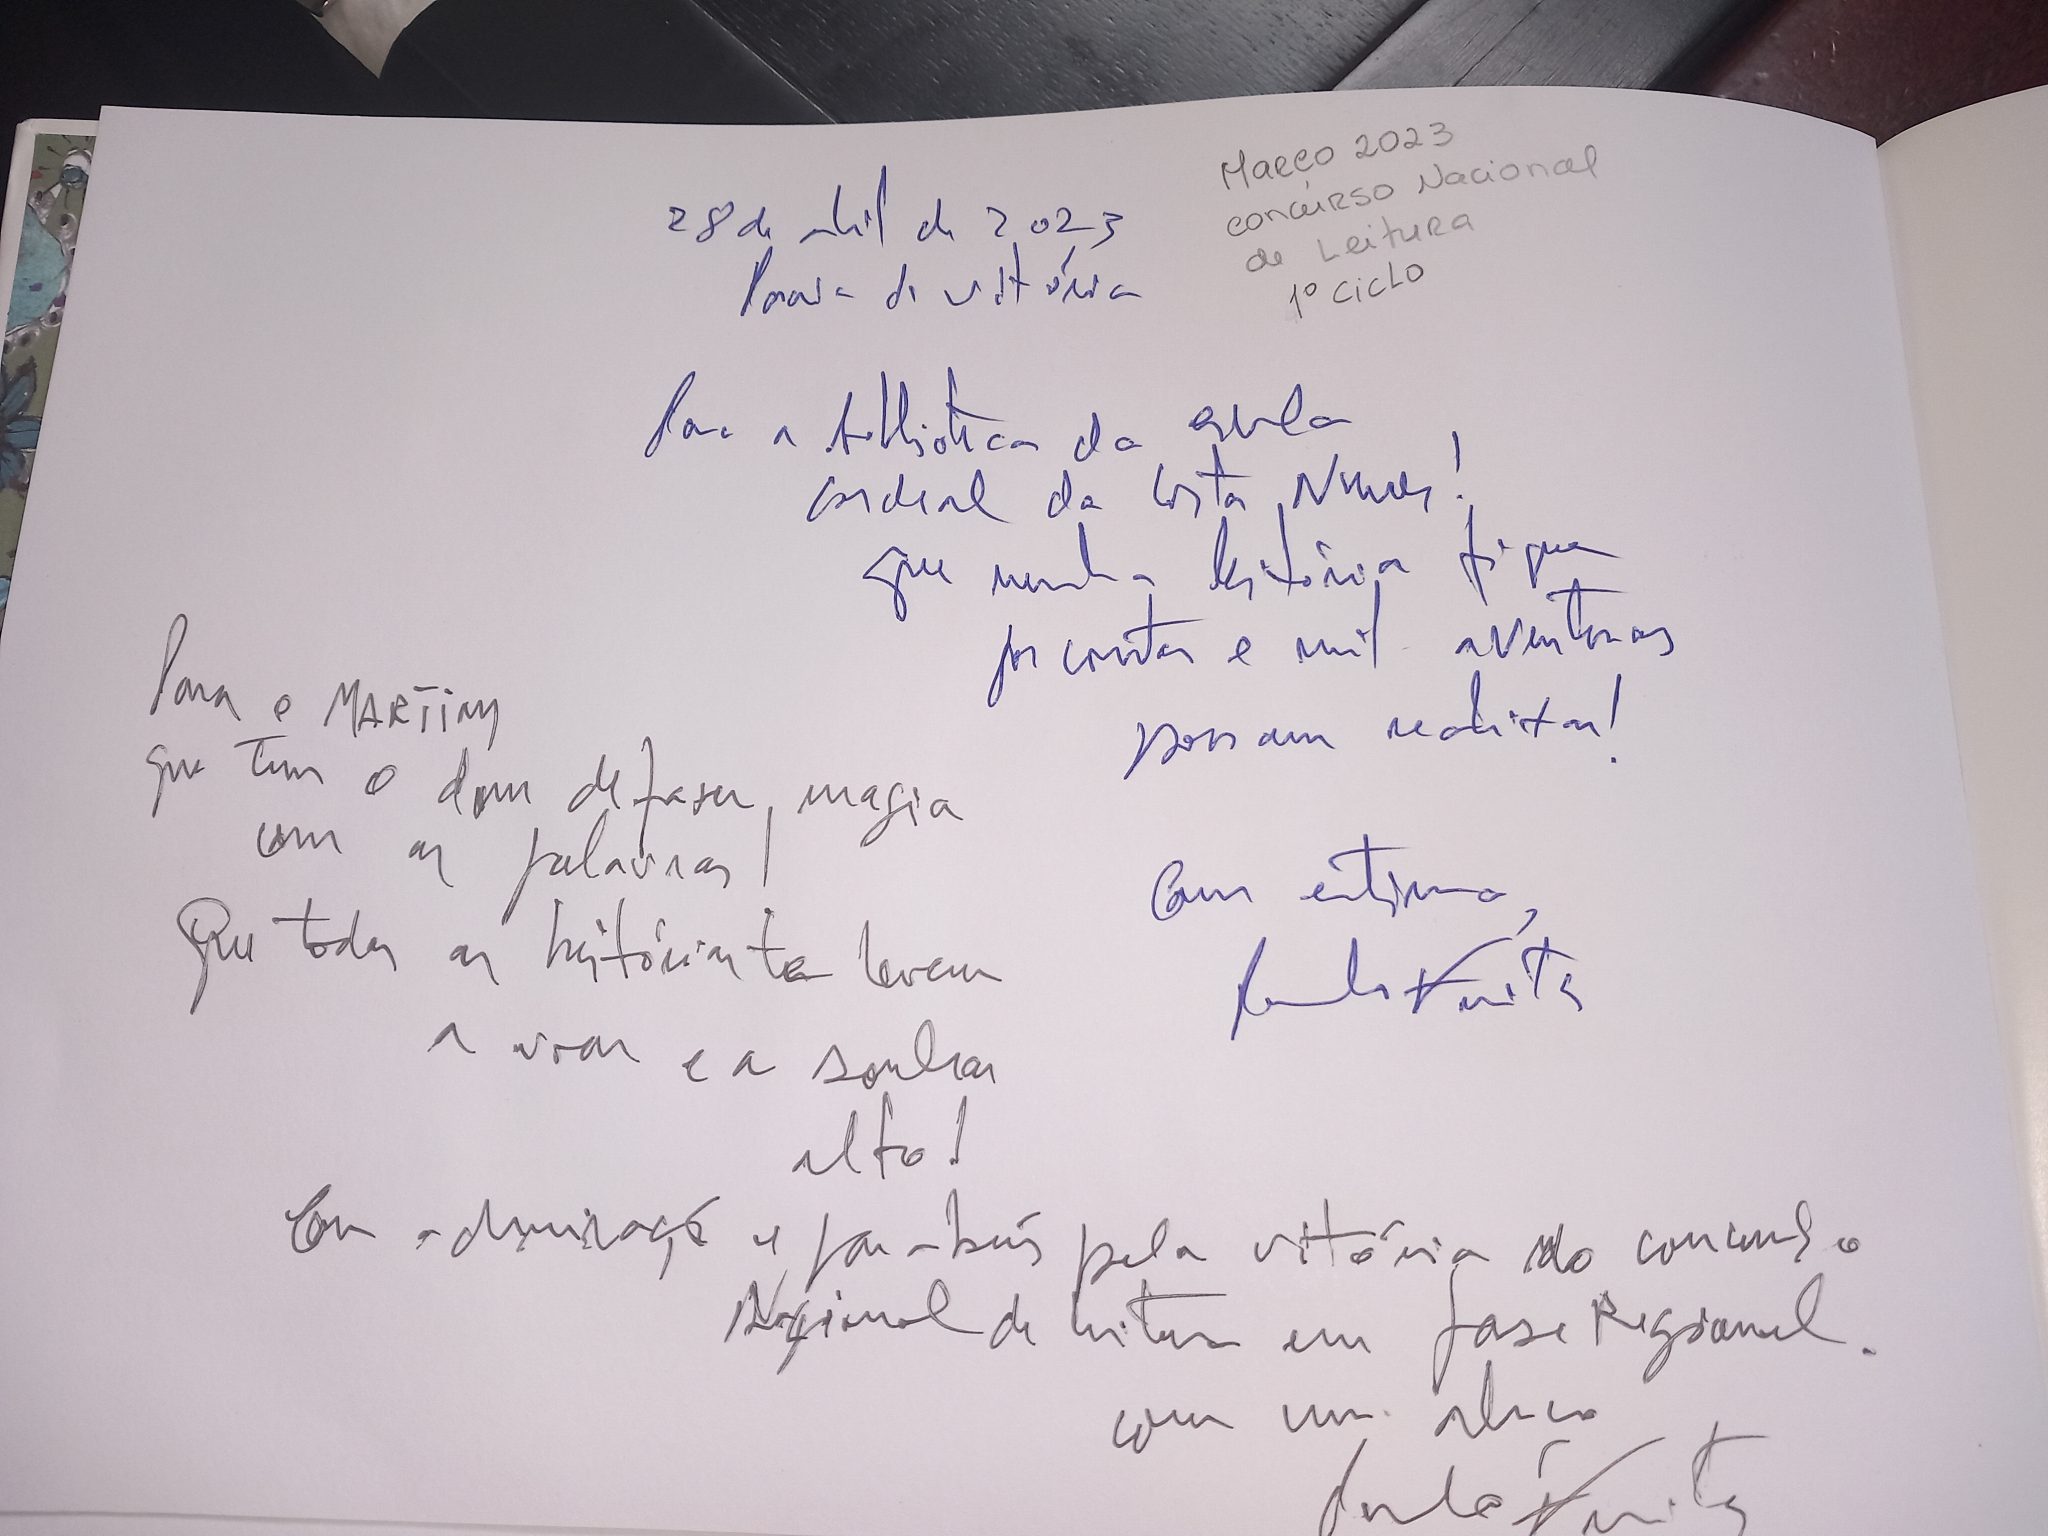 Março 2023
concurso Nacional
de Leitura
1º ciclo
28 de abril de 2023
Praia da vitória
Para a biblioteca da escola
cardeal da Costa Nunes!
que nenha história fique
por contar e mil aventuras
possam realizar!
Com estima,
Para o MARTIM
que tem o dom de fazer magia
com as palavras!
Que todas as histórias te levem
a voar e a sonhar
alto!
Com admiração e parabéns pela vitória do concurso
Nacional de leitura em fase Regional.
com um abraço